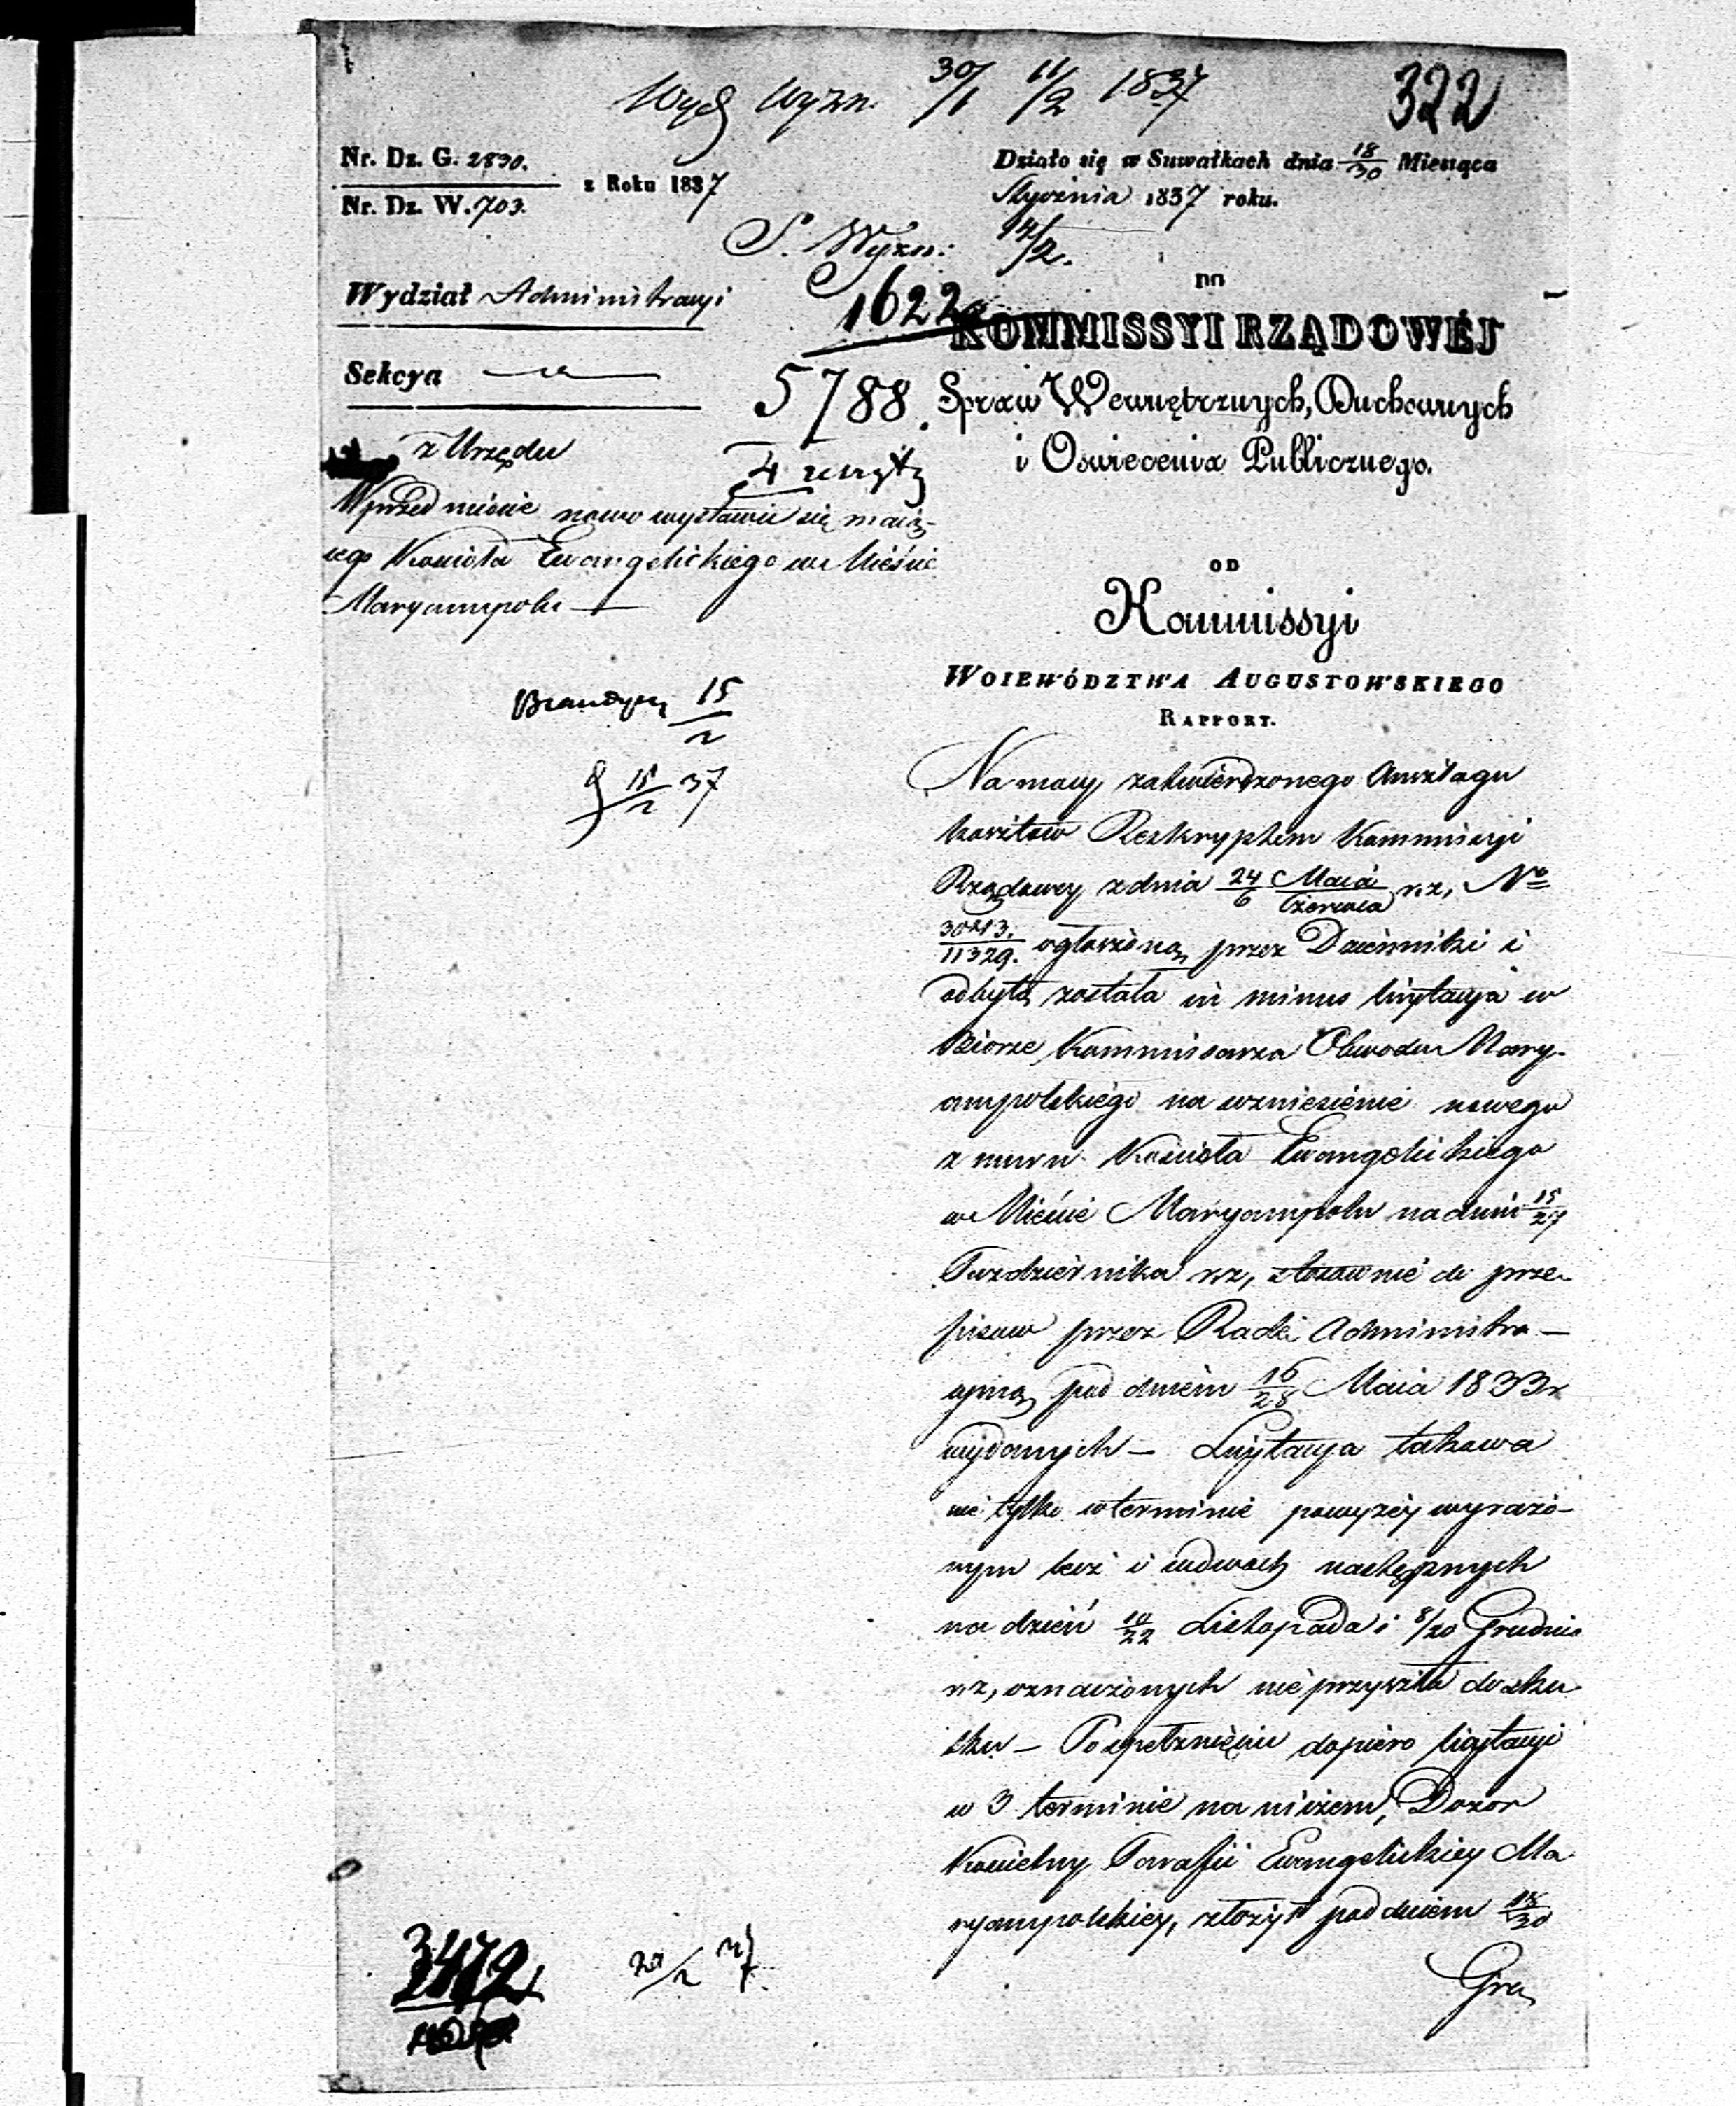 Wydz Wyzn. 30/1 11/2 1837
322
Nr. Dz. G. 2830.
Nr. Dz. W. 703.
z Roku 1837
Działo się w Suwałkach dnia 18/30 Miesiąca
Stycznia 1837 roku.
S. Wyzn: 14/2.
Wydział Administracyi
1622
Sekcya
5788.
DO
KOMMISSYI RZĄDOWÉJ
Spraw Wewnętrznych, Duchownych
i Oswiecenia Publicznego.
z Urzędu
W przedmiocie nowo wystawić się maią-
cego Kościoła Ewangelickiego w Mieście
Maryampolu
15/2
15/2 37
OD
Kommissyi
WOIEWÓDZTWA AUGUSTOWSKIEGO
RAPPORT.
Na mocy zatwierdzonego Anszlagu
kosztow Reskryptem Kommissyi
Rządowey z dnia 24/6 Maia/Czerwca r.z, No
30213./11329. ogłoszoną przez Dzienniki i
odbytą została in minus licytacya w
Biorze Kommissarza Obwodu Mary-
ampolskiégo na wzniesienie nowego
z muru Kościoła Ewangelickiego
w Mieście Maryampolu na dniu 15/27
Pazdziernika r.z, stosownie do prze-
pisow przez Radę Administra-
cyiną pod dniem 16/28 Maia 1833 r
wydanych – Licytacya takowa
nie tylko w terminie powyżéy wyrażo-
nym lecz i w dwoch następnych
na dzień 10/22 Listopada i 8/20 Grudnia
r.z, oznaczonych nie przyszła do sku-
tku – Po spełznięciu dopiero licytacyi
w 3 terminie na niczem, Dozor
Kościelny Parafii Ewangelickiey Ma
ryampolskiey, złożył pod dniem 18/30
Gru
3472